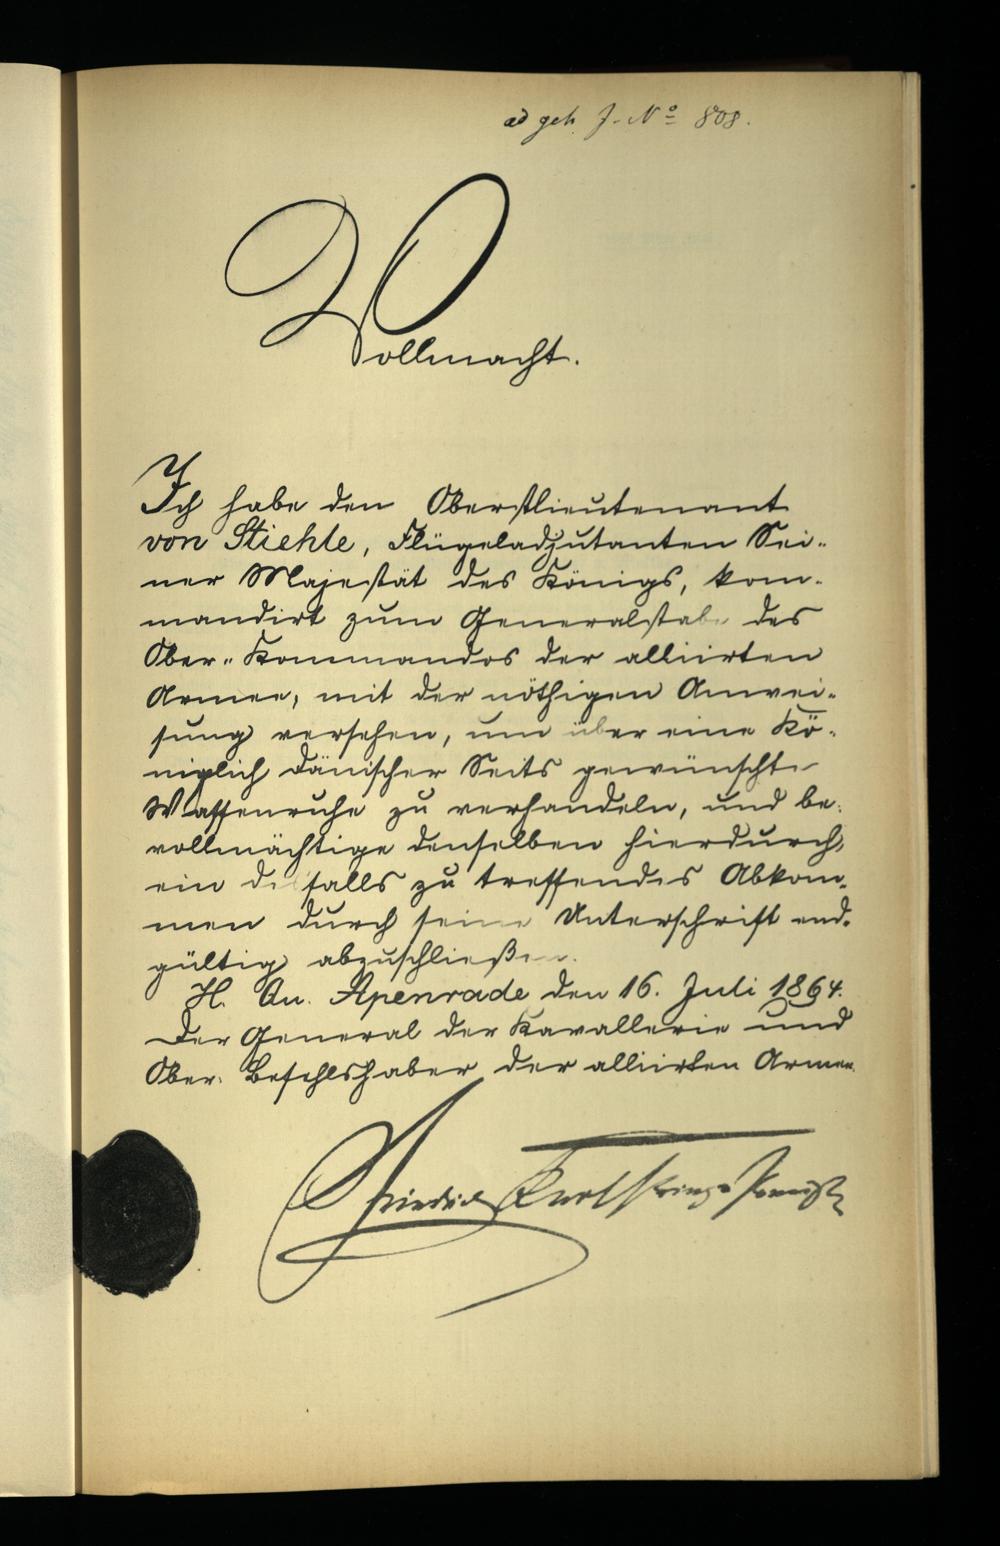 ad geh. J. No 808.
Vollmacht.
Ich habe den Oberstlieutenant
von Stiehle, Flügeladjutanten Sei-
ner Majestät des Königs, kom-
mandirt zum Generalstabe des
Ober-Kommandos der alliirten
Armee, mit der nöthigen Anwei-
sung versehen, um über eine Kö-
niglich Dänischer Seits gewünschte
Waffenruhe zu verhandeln, und be-
vollmächtige denselben hierdurch,
ein desfalls zu treffendes Abkom-
men durch seine Unterschrift end-
gültig abzuschließen.
H. Qu. Apenrade den 16. Juli 1864.
Der General der Kavallerie und
Ober-Befehlshaber der alliirten Armee.
Friedrich Karl Prinz v Preußen